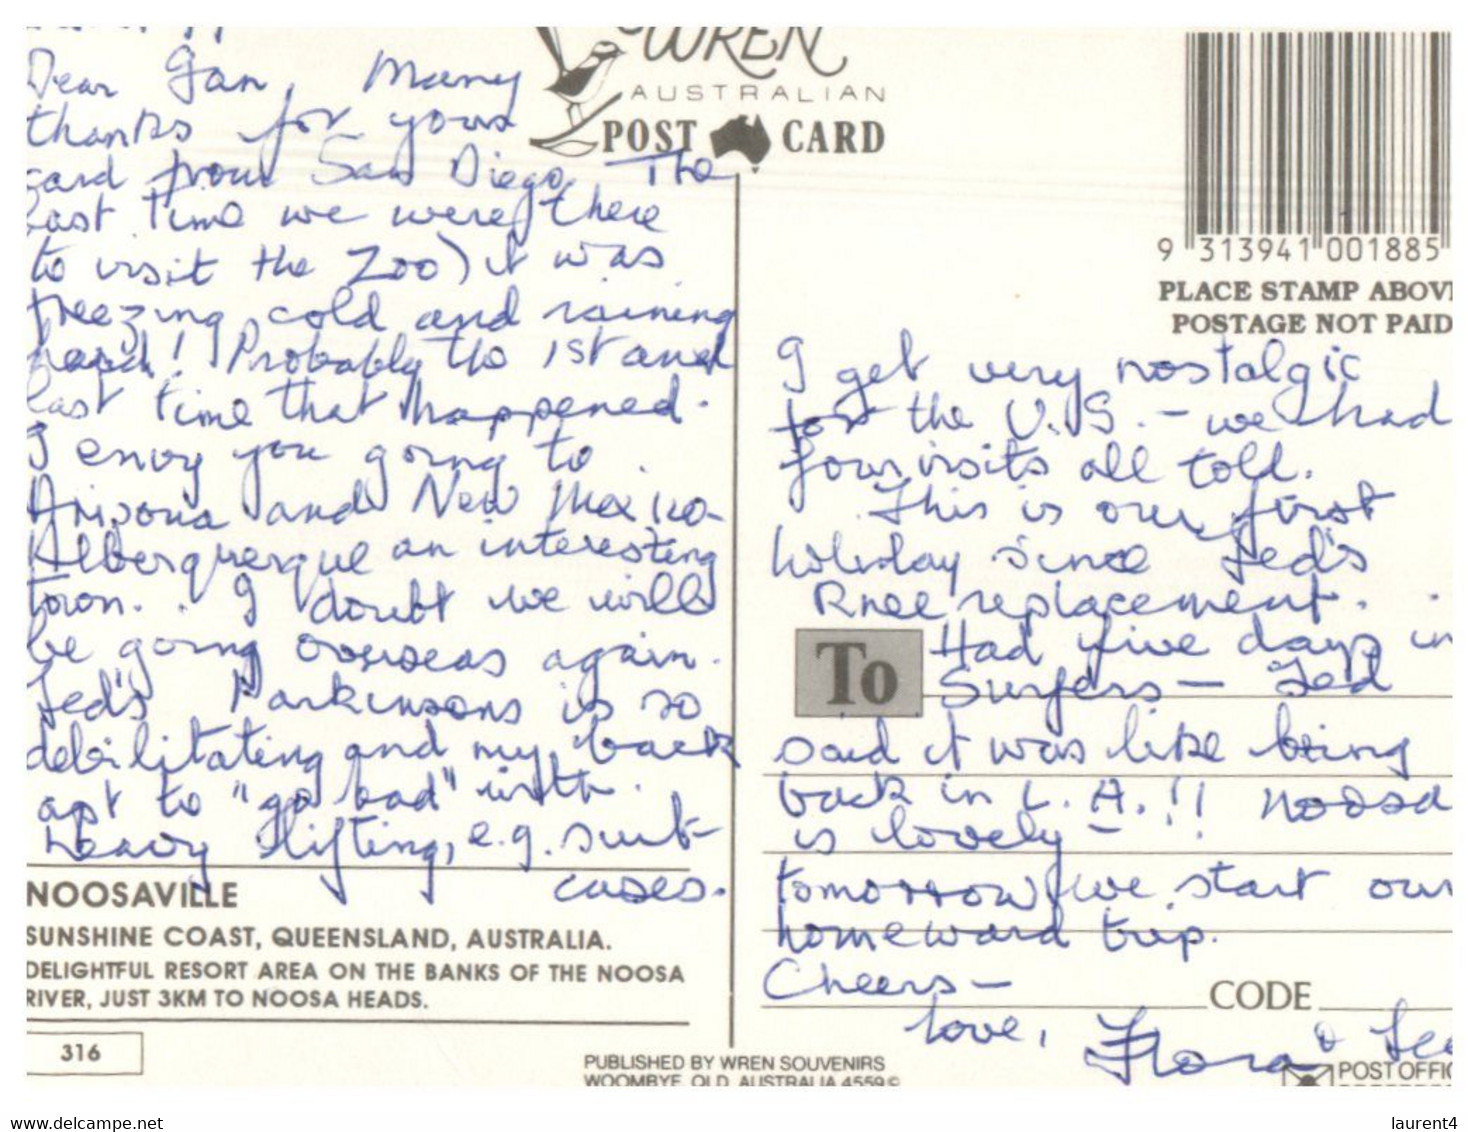 Dear Jan, Many
thanks for your
card from San Diego. The
last time we were there
to visit the Zoo) it was
freezing cold and raining
hard! Probably the 1st and
last time that happened.
I envy you going to
Arizona and New Mexico -
Alberquerque an interesting
town. I doubt we will
be going overseas again.
Ted's Parkinsons is so
debilitating and my back
apt to "go bad" with
heavy lifting, e.g. suit-
cases.
NOOSAVILLE
SUNSHINE COAST, QUEENSLAND, AUSTRALIA.
DELIGHTFUL RESORT AREA ON THE BANKS OF THE NOOSA
RIVER, JUST 3KM TO NOOSA HEADS.
316
WREN
AUSTRALIAN
POST CARD
9 313941 001885
PLACE STAMP ABOVE
POSTAGE NOT PAID
I get very nostalgic
for the U.S. - we had
four visits all told.
This is our first
holiday since Ted's
Knee replacement.
Had five days in
To
Surfers - Ted
said it was like being
back in L.A.!! Noosa
is lovely -
tomorrow we start our
homeward trip.
Cheers -
CODE
love,
Flora & Ted
PUBLISHED BY WREN SOUVENIRS
WOOMBYE, QLD. AUSTRALIA 4559 ©
POST OFFIC
www.delcampe.net
laurent4